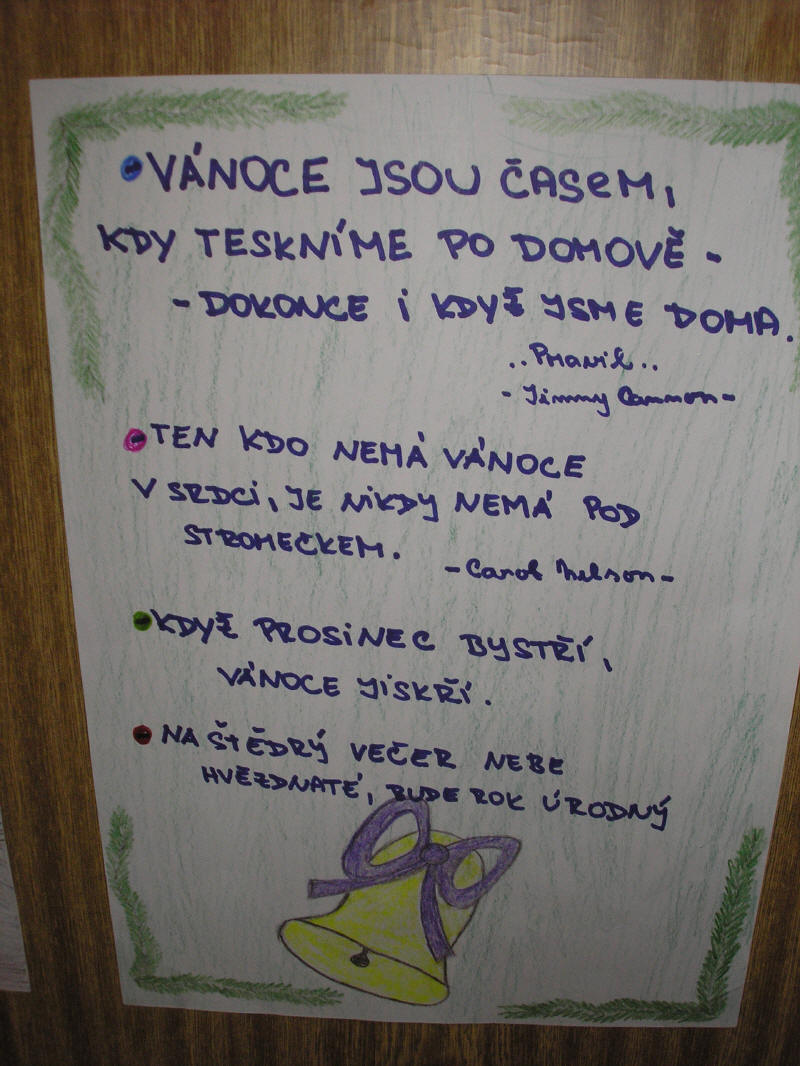 • VÁNOCE JSOU ČASeM,
KDY TESKNÍME PO DOMOVĚ -
- DOKONCE i KDYŽ JSME DOMA.
..Pravil..
- Jimmy Cannon -
• TEN KDO NEMÁ VÁNOCE
V SRDCi, JE NiKDY NEMÁ POD
STROMEČKEM.
- Carol Nelson -
• KDYŽ PROSiNEC BYSTŘÍ,
VÁNOCE JiSKŘÍ.
• NA ŠTĚDRÝ VEČER NEBE
HVĚZDNATÉ, BUDE ROK ÚRODNÝ